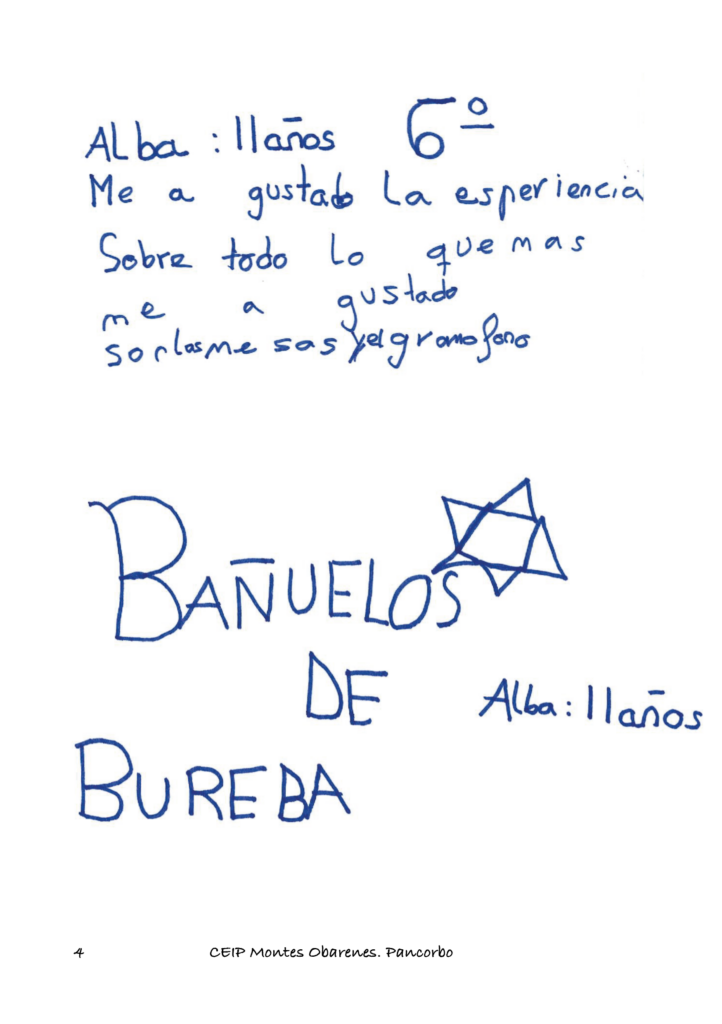 Alba : 11 años 6º
Me a gustado la esperiencia
Sobre todo lo que mas
me a gustado
sor las mesas y el gramofono
BAÑUELOS
DE
Alba : 11 años
BUREBA
4 CEIP Montes Obarenes. Pancorbo